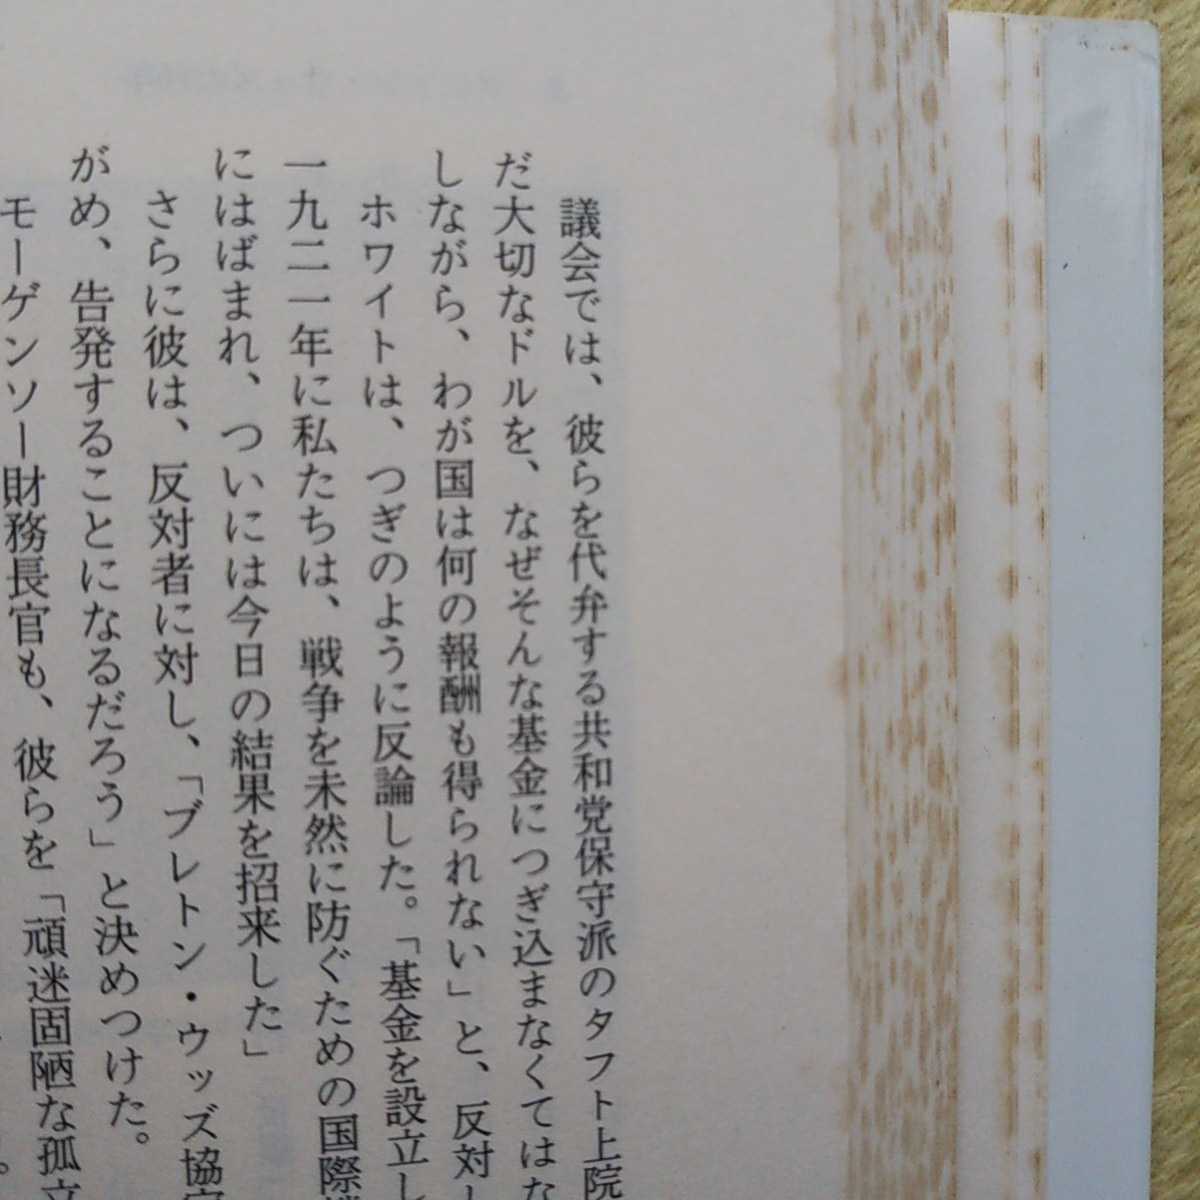 議会では、彼らを代弁する共和党保守派のタフト上院
だ大切なドルを、なぜそんな基金につぎ込まなくてはな
しながら、わが国は何の報酬も得られない」と、反対し
ホワイトは、つぎのように反論した。「基金を設立し
一九二一年に私たちは、戦争を未然に防ぐための国際
にはばまれ、ついには今日の結果を招来した」
さらに彼は、反対者に対し、「ブレトン・ウッズ協定
がめ、告発することになるだろう」と決めつけた。
モーゲンソー財務長官も、彼らを「頑迷固陋な孤立